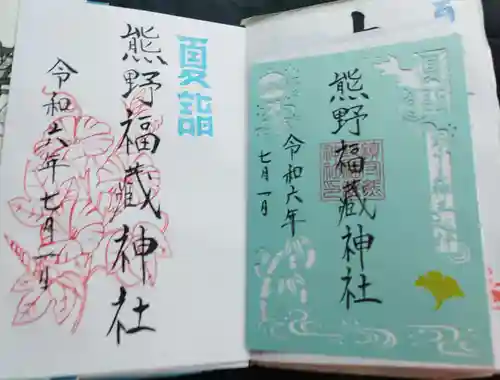 夏詣
熊野福藏神社
令和六年七月一日
夏詣
熊野福藏神社
令和六年
七月一日